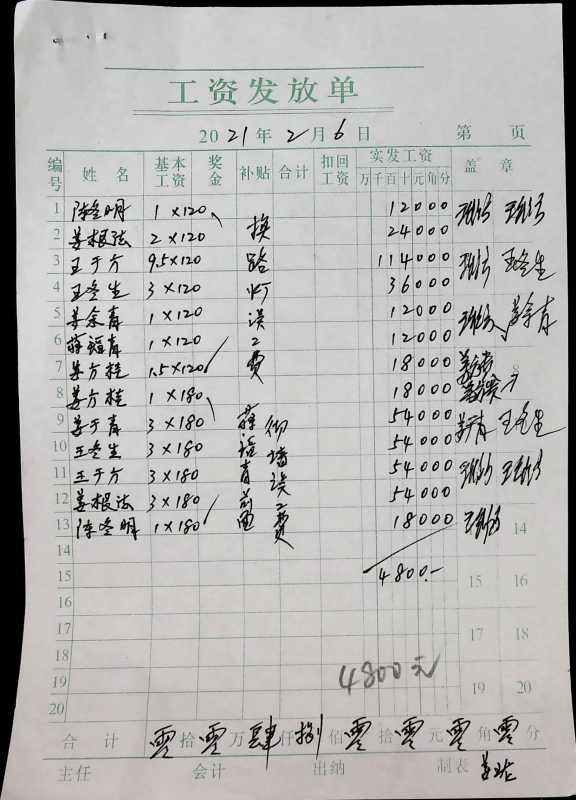 工资发放单
2021年2月6日 第 页
编号 姓名 基本工资 奖金 补贴 合计 扣回工资 实发工资 万千百十元角分 盖章
1 陈冬明 1×120 12000
2 姜根法 2×120 24000
3 王于方 9.5×120 114000
4 王冬生 3×120 36000 王冬生
5 姜余青 1×120 12000 姜余青
6 蒋福青 1×120 12000
7 姜方桂 1.5×120 18000
8 姜方桂 1×180 18000 8
9 姜于青 3×180 54000
10 王冬生 3×180 54000 王冬生
11 王于方 3×180 54000
12 姜根法 3×180 54000
13 陈冬明 1×180 18000 14
换路灯误工费
砌墙误工费
14
15 4800.- 15 16
16
17 17 18
18
19 4800元 19 20
20
合计 零拾零万肆仟捌佰零拾零元零角零分
主任 会计 出纳 制表